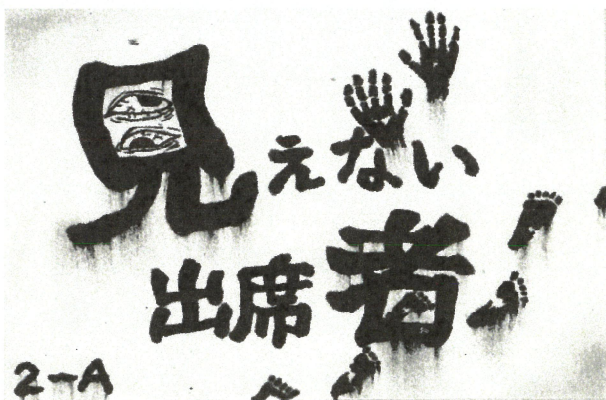 見えない
出席者
2-A